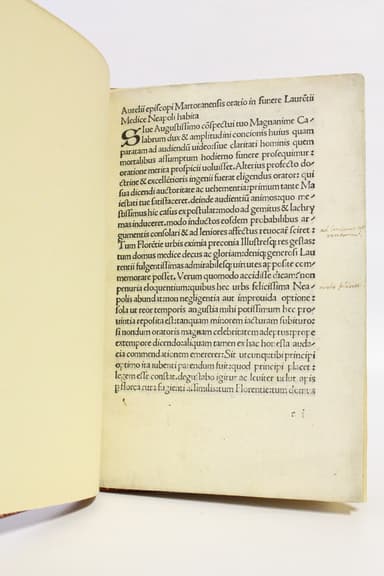 Aurelii episcopi Martoranensis oratio in funere Laurētii
Medice Neapoli habita
Siue Augustissimo cōspectui tuo Magnanime Ca⸗
labrum dux & amplitudini concionis huius quam
paratam ad audiendū uideo: siue claritati hominis quem
mortalibus assumptum hodierno funere prosequimur:
oratione merita prospicii uoluisset. Alterius profecto do⸗
ctrine & excellētioris ingenii fuerat eligendus orator: qui
sua dicendi auctoritate ac uehementia: primum tante Ma
iestati tue satisfaceret. deinde audientiū animos quo me⸗
stissimus hic casus expostulat: modo ad gemitus & lachry
mas induceret. modo inductos eosdem probabilibus ar⸗
gumentis consolari & ad leniores affectus reuocaf sciret:
Tum Florētie urbis eximia preconia Illustresq; res gestas:
tum domus medice decus ac gloriam: deniq; generosi Lau
rentii fulgentissimas admirabilesq; uirtutes apposite com⸗
memorare posset. Verum quomodo accidisse dicam: non
penuria eloquentium: quibus hec urbs felicissima Nea⸗
polis abundat: non negligentia aut improuida optione:
sola ut reor temporis angustia mihi potissimum hec pro⸗
uintia reposita est: tanquam minorem iacturam subituro:
si nondum oratoris magnam celebritatem adeptus: prope
extempore dicendo: aliquam tamen ex hac honesta auda⸗
cia commendationem emererer. Sit utcunq; tibi principi
optimo ita iubenti parendum fuit: quod principi placet:
legem esse constat.